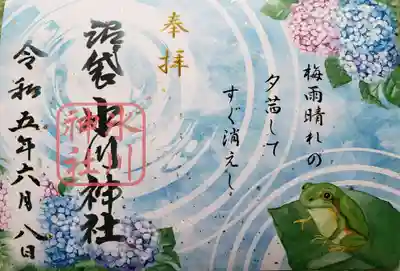 奉拝
梅雨晴れの
夕茜して
すぐ消えし
沼袋氷川神社
氷川
神社
令和五年六月八日